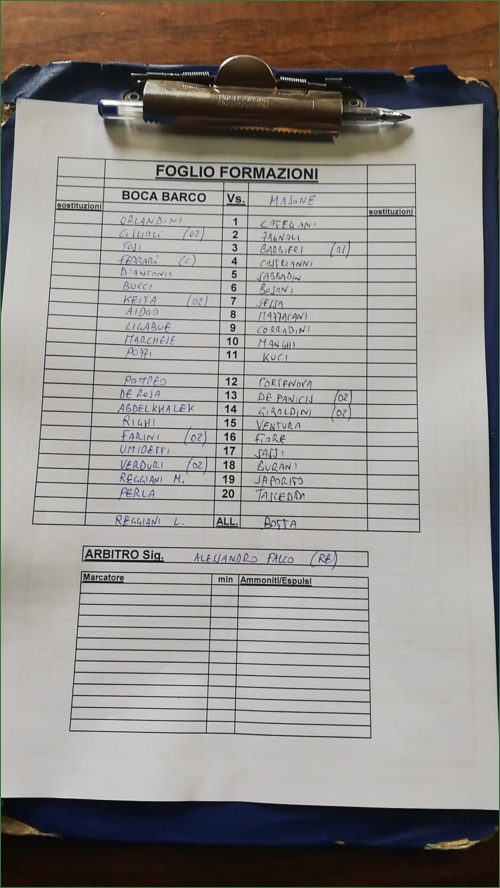 FOGLIO FORMAZIONI
BOCA BARCO Vs. MASONE
sostituzioni sostituzioni
ORLANDINI 1 CATELANI
(02) 2 ZAGNOLI
TOSI 3 BARBIERI (01)
FERRARI (C) 4 CASTRIANNI
D'ANTONIO 5 SABBADIN
BUCCI 6 BOSONI
KEITA (02) 7 SESSA
AIDOO 8 MAZZACANI
LIGABUE 9 CORRADINI
MARCHESE 10 MANGHI
POZZI 11 KUCI
POMPEO 12 CORTENOVA
DE ROSA 13 DE PANICIS (02)
ABDELKHALEK 14 GIROLDINI (02)
RIGHI 15 VENTURA
FARINI (02) 16 FIORE
17 SASSI
VERDURI (02) 18 BURANI
REGGIANI M. 19 SAPORITO
PERLA 20 TASSEDDA
REGGIANI L. ALL. BOTTA
ARBITRO Sig. ALESSANDRO (RE)
Marcatore min Ammoniti/Espulsi